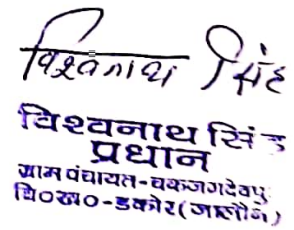 विश्वनाथ सिंह
विश्वनाथ सिंह
प्रधान
ग्राम पंचायत-चकजगदेवपु
वि०ख०-डकोर(जालौन)